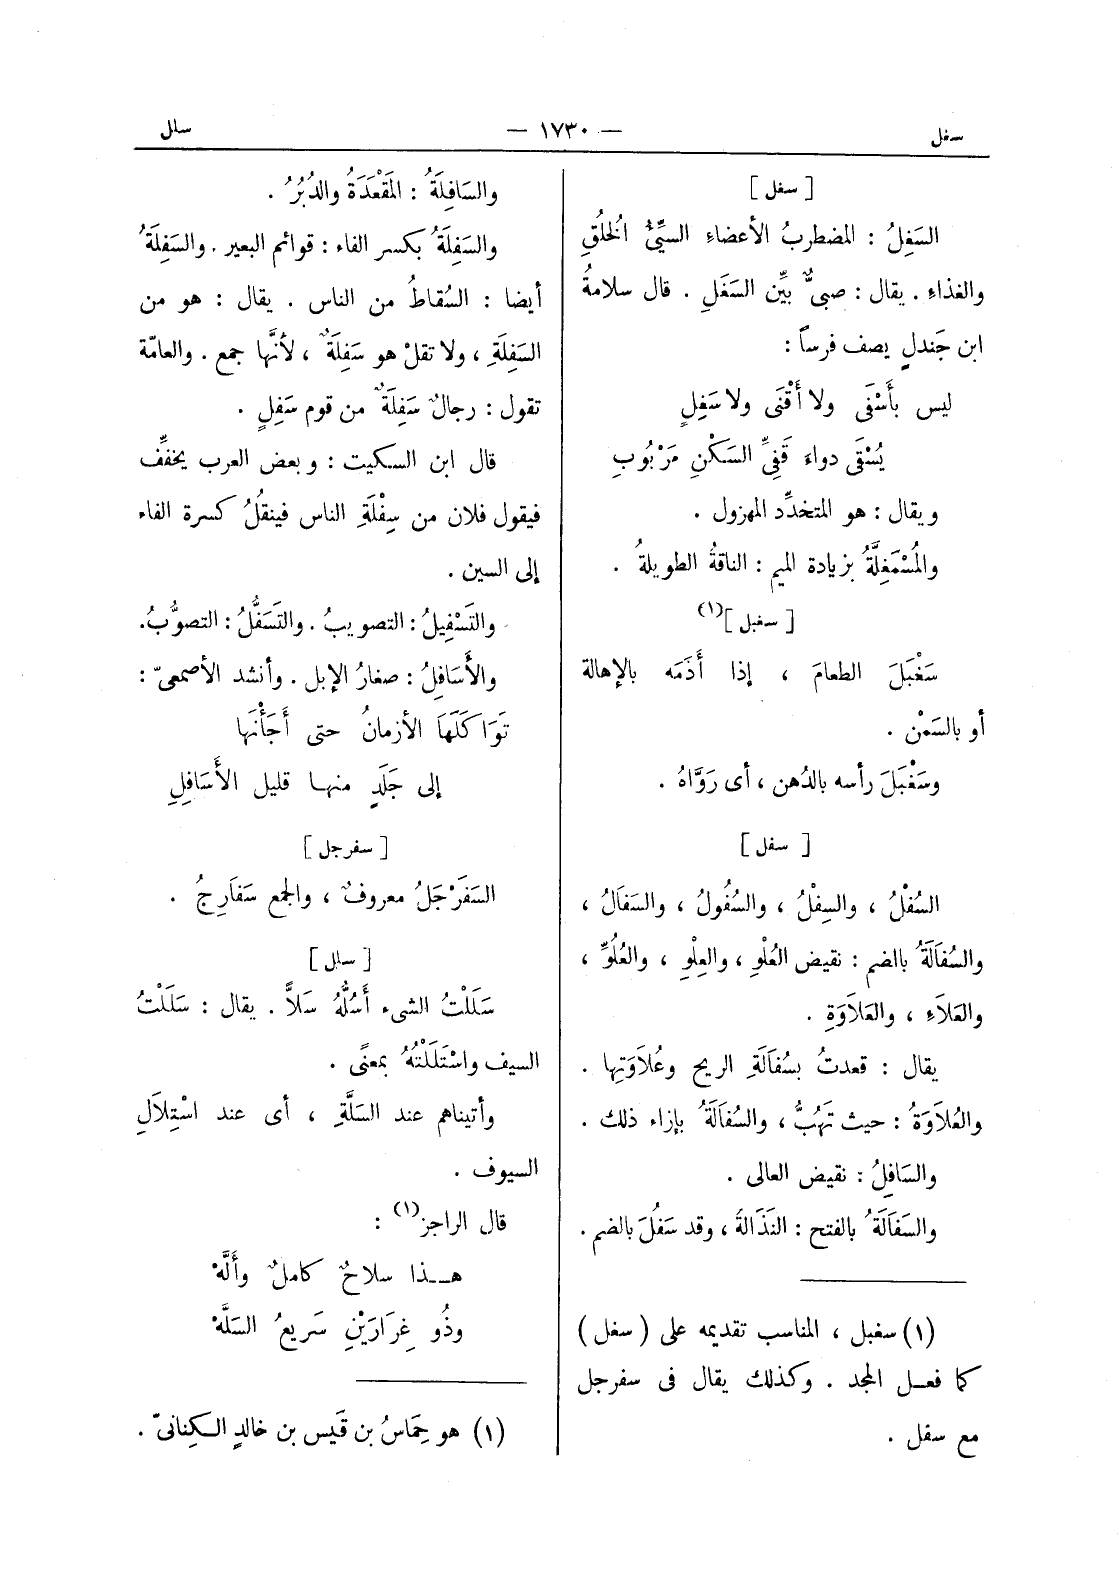 سغل — ١٧٣٠ — سلل
[ سغل ]
السَغِلُ : المضطربُ الأعضاءِ السيِّئُ الخلُقِ
والغذاءِ . يقال : صبىٌّ بيِّن السَغَلِ . قال سلامةُ
ابن جَندلٍ يصف فرساً :
ليس بأَسْفَى ولا أَقْنَى ولا سَغِلٍ
يُسْقَى دواءَ قَفِىِّ السَكْنِ مَرْبُوبِ
ويقال : هو المتخدِّد المهزول .
والمُسْمَغِلَّةُ بزيادة الميم : الناقةُ الطويلةُ .
[ سغبل ](١)
سَغْبَلَ الطعامَ ، إذا أَدَمَه بالإهالة
أو بالسَمْن .
وسَغْبَلَ رأسه بالدُهن ، أى رَوَّاهُ .
[ سفل ]
السُفْلُ ، والسِفْلُ ، والسُفُولُ ، والسَفَالُ ،
والسُفَالَةُ باالضم : نقيض العُلْوِ ، والعِلْوِ ، والعُلُوِّ ،
والعَلاَءِ ، والعَلاَوَةِ .
يقال : قعدتُ بسُفَالَةِ الريح وعُلاَوَتِها .
والعُلاَوَةُ : حيث تَهُبُّ ، والسُفَالَةُ بإزاء ذلك .
والسَافِلُ : نقيض العالى .
والسَفَالَةُ بالفتح : النَذَالةُ ، وقد سَفُلَ بالضم .
(١) سغبل ، المناسب تقديمه على ( سغل )
كما فعل المجد . وكذلك يقال فى سفرجل
مع سفل .
والسَافِلَةُ : المَقْعَدَةُ والدُبُرُ .
والسَفِلَةُ بكسر الفاء : قوائم البعير . والسَفِلَةُ
أيضا : السُقاطُ من الناس . يقال : هو من
السَفِلَةِ ، ولا تقلْ هو سَفِلَةٌ ، لأنَّها جمع . والعامّة
تقول : رجلٌ سَفِلَةٌ من قوم سَفِلٍ .
قال ابن السكيت : وبعض العرب يخفِّف
فيقول فلان من سِفْلَةِ الناس فينقُلُ كسرة الفاء
إلى السين .
والتَسْفِيلُ : التصويبُ . والتَسَفُّلُ : التصوُّبُ.
والأَسَافِلُ : صغارُ الإبل . وأنشد الأصمعىّ :
تَوَاكَلَهَا الأزمانُ حتى أَجَأْنَها
إلى جَلَدٍ منها قليل الأَسَافِلِ
[ سفرجل ]
السَفَرْجَلُ معروفٌ ، والجمع سَفَارِجُ .
[ سلل ]
سَلَلْتُ الشىء أَسُلُّهُ سَلاًّ . يقال : سَلَلْتُ
السيف واسْتَلَلْتُهُ بمعنًى .
وأتيناهم عند السَلَّةِ ، أى عند اسْتِلاَلِ
السيوف .
قال الراجز(١) :
هذا سلاحٌ كاملٌ وأَلَّهْ
وذُو غِرَارَيْنِ سَرِيعُ السَلَّهْ
(١) هو حِمَاسُ بن قَيس بن خالدٍ الكِنانىّ .